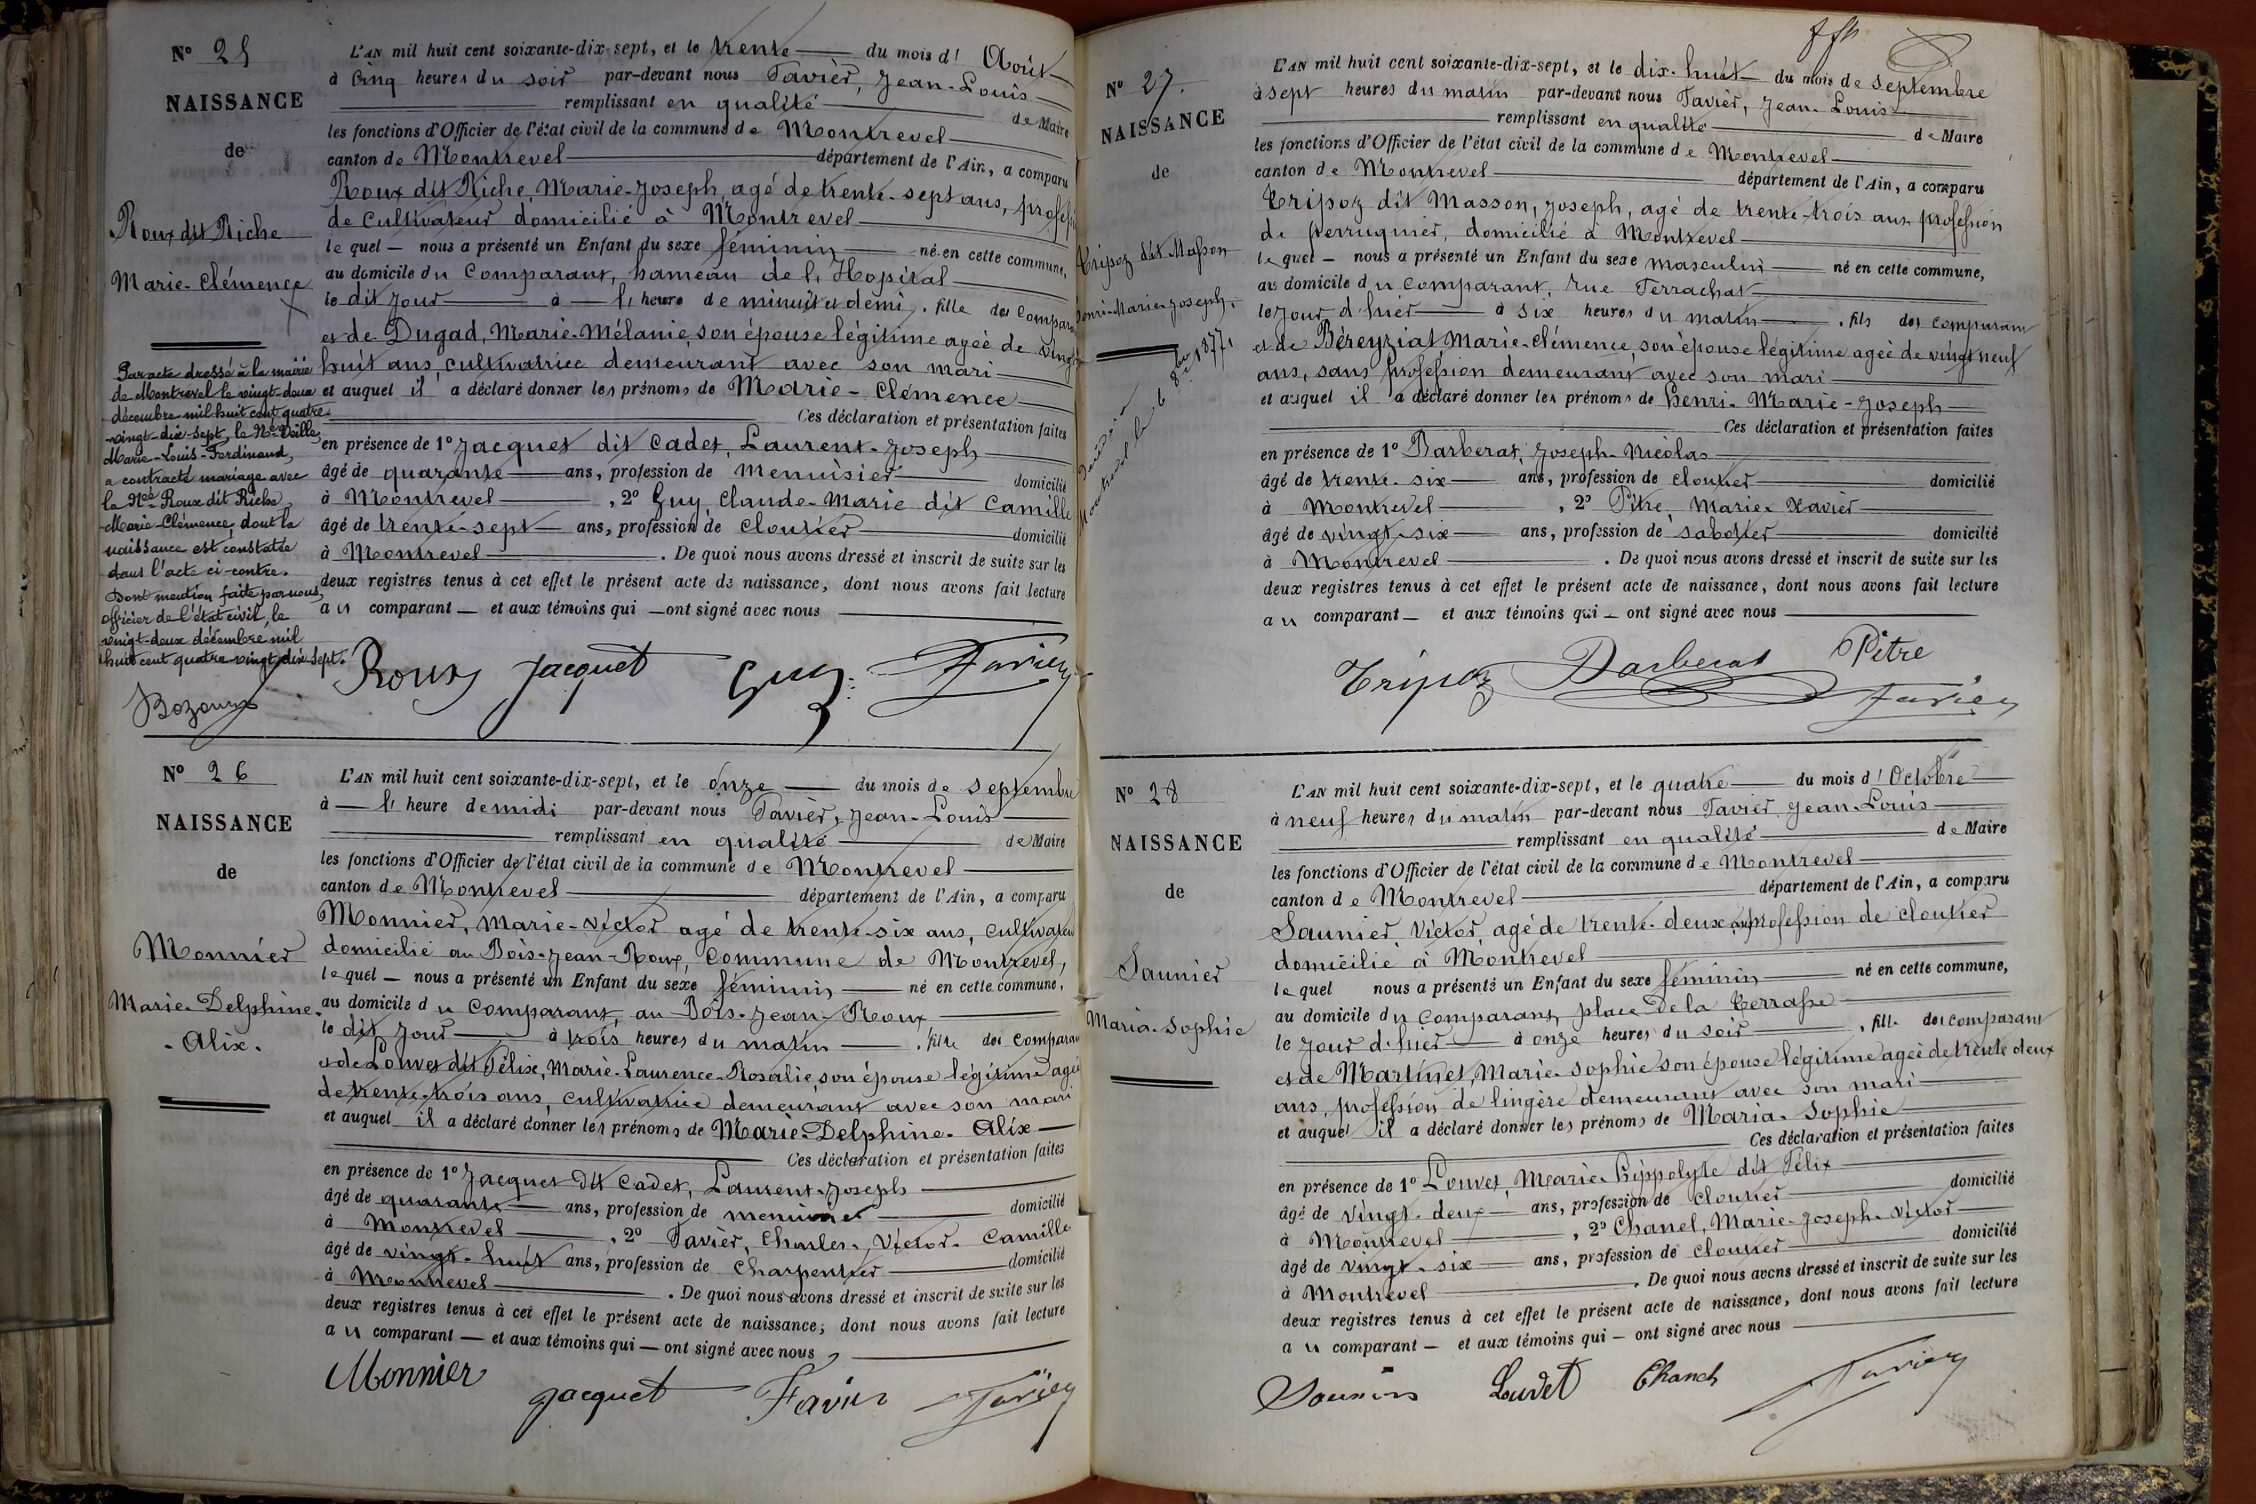 N° 25
NAISSANCE
de
Roux dit Riche
Marie-Clémence
Par acte dressé à la mairie
de Montrevel le vingt-deux
décembre mil huit cent quatre-
vingt-dix-sept, le Né Veille,
Marie-Louis-Ferdinand,
a contracté mariage avec
la Née Roux dit Riche,
Marie-Clémence, dont la
naissance est constatée
dans l'acte ci-contre.
Dont mention faite par nous,
officier de l'état civil, le
vingt-deux décembre mil
huit cent quatre-vingt-dix-sept.
L'AN mil huit cent soixante-dix-sept, et le trente du mois d' Août
à Cinq heures du soir par-devant nous Favier, Jean-Louis
remplissant en qualité de Maire
les fonctions d'Officier de l'état civil de la commune de Montrevel
canton de Montrevel département de l'Ain, a comparu
Roux dit Riche, Marie-Joseph, agé de trente-sept ans, profession
de Cultivateur domicilié à Montrevel
le quel — nous a présenté un Enfant du sexe féminin né en cette commune,
au domicile du Comparant, hameau de l'Hopital
le dit jour à — l' heure de minuit et demi. fille des Comparant
et de Dugad, Marie-Mélanie, son épouse légitime agée de vingt
huit ans, cultivatrice demeurant avec son mari
et auquel il a déclaré donner les prénoms de Marie-Clémence
Ces déclaration et présentation faites
en présence de 1° Jacquet dit Cadet, Laurent-Joseph
âgé de quarante ans, profession de menuisier domicilié
à Montrevel, 2° Guy, Claude-Marie dit Camille
âgé de trente-sept ans, profession de cloutier domicilié
à Montrevel. De quoi nous avons dressé et inscrit de suite sur les
deux registres tenus à cet effet le présent acte de naissance, dont nous avons fait lecture
au comparant — et aux témoins qui — ont signé avec nous
Roux Jacquet Guy Favier
N° 26
NAISSANCE
de
Monnier
Marie-Delphine-
-Alix.
L'AN mil huit cent soixante-dix-sept, et le onze du mois de Septembre
à — l' heure de midi par-devant nous Favier, Jean-Louis
remplissant en qualité de Maire
les fonctions d'Officier de l'état civil de la commune de Montrevel
canton de Montrevel département de l'Ain, a comparu
Monnier, Marie-Victor agé de trente-six ans, cultivateur
domicilié au Bois-Jean-Roux, Commune de Montrevel,
le quel — nous a présenté un Enfant du sexe féminin né en cette commune,
au domicile du Comparant, au Bois-Jean-Roux
le dit jour à trois heures du matin. fille des Comparant
et de Louvet dit Félix, Marie-Laurence-Rosalie, son épouse légitime agée
de trente-trois ans, cultivatrice demeurant avec son mari
et auquel il a déclaré donner les prénoms de Marie-Delphine-Alix
Ces déclaration et présentation faites
en présence de 1° Jacquet dit Cadet, Laurent-Joseph
âgé de quarante ans, profession de menuisier domicilié
à Montrevel, 2° Favier, Charles-Victor-Camille
âgé de vingt-huit ans, profession de Charpentier domicilié
à Montrevel. De quoi nous avons dressé et inscrit de suite sur les
deux registres tenus à cet effet le présent acte de naissance, dont nous avons fait lecture
au comparant — et aux témoins qui — ont signé avec nous
Monnier Jacquet Favier Favier
N° 27.
NAISSANCE
de
Tripoz dit Masson
Henri-Marie-Joseph.
L'AN mil huit cent soixante-dix-sept, et le dix-huit du mois de Septembre
à sept heures du matin par-devant nous Favier, Jean-Louis
remplissant en qualité de Maire
les fonctions d'Officier de l'état civil de la commune de Montrevel
canton de Montrevel département de l'Ain, a comparu
Tripoz dit Masson, Joseph, agé de trente-trois ans profession
de perruquier, domicilié à Montrevel
le quel — nous a présenté un Enfant du sexe masculin né en cette commune,
au domicile du Comparant, rue Ferrachat
le jour d'hier à six heures du matin. fils des Comparant
et de Béreyziat Marie-Clémence, son épouse légitime agée de vingt neuf
ans, sans profession demeurant avec son mari
et auquel il a déclaré donner les prénoms de Henri-Marie-Joseph
Ces déclaration et présentation faites
en présence de 1° Barberat, Joseph-Nicolas
âgé de trente-six ans, profession de cloutier domicilié
à Montrevel, 2° Pitre, Marie-Xavier
âgé de vingt-six ans, profession de sabotier domicilié
à Montrevel. De quoi nous avons dressé et inscrit de suite sur les
deux registres tenus à cet effet le présent acte de naissance, dont nous avons fait lecture
au comparant — et aux témoins qui — ont signé avec nous
Tripoz Barberat Pitre
Favier
N° 28
NAISSANCE
de
Saunier
Maria-Sophie
L'AN mil huit cent soixante-dix-sept, et le quatre du mois d' Octobre
à neuf heures du matin par-devant nous Favier Jean-Louis
remplissant en qualité de Maire
les fonctions d'Officier de l'état civil de la commune de Montrevel
canton de Montrevel département de l'Ain, a comparu
Saunier, Victor, agé de trente-deux ans profession de cloutier
domicilié à Montrevel
le quel nous a présenté un Enfant du sexe féminin né en cette commune,
au domicile du Comparant, place de la terrasse
le jour d'hier à onze heures du soir. fille des comparant
et de Martinet, Marie-Sophie son épouse légitime agée de trente deux
ans, profession de lingère demeurant avec son mari
et auquel il a déclaré donner les prénoms de Maria-Sophie
Ces déclaration et présentation faites
en présence de 1° Louvet, Marie-Hippolyte dit Félix
âgé de vingt-deux ans, profession de cloutier domicilié
à Montrevel, 2° Chanel, Marie-Joseph-Victor
âgé de vingt-six ans, profession de cloutier domicilié
à Montrevel. De quoi nous avons dressé et inscrit de suite sur les
deux registres tenus à cet effet le présent acte de naissance, dont nous avons fait lecture
au comparant — et aux témoins qui — ont signé avec nous
Saunier Louvet Chanel Favier